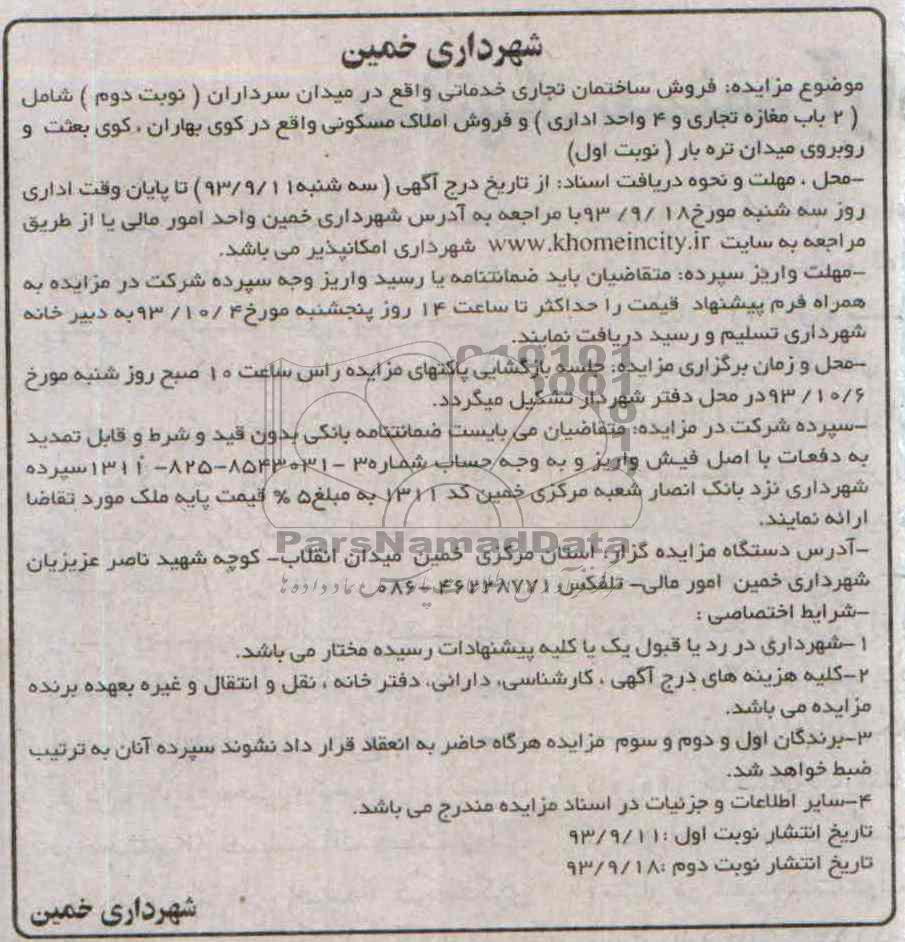 شهرداری خمین
موضوع مزایده: فروش ساختمان تجاری خدماتی واقع در میدان سرداران ( نوبت دوم ) شامل
( ۲ باب مغازه تجاری و ۴ واحد اداری ) و فروش املاک مسکونی واقع در کوی بهاران ، کوی بعثت و
روبروی میدان تره بار ( نوبت اول)
-محل ، مهلت و نحوه دریافت اسناد: از تاریخ درج آگهی ( سه شنبه۹۳/۹/۱۱) تا پایان وقت اداری
روز سه شنبه مورخ۱۸ /۹/ ۹۳با مراجعه به آدرس شهرداری خمین واحد امور مالی یا از طریق
مراجعه به سایت www.khomeincity.ir شهرداری امکانپذیر می باشد.
-مهلت واریز سپرده: متقاضیان باید ضمانتنامه یا رسید واریز وجه سپرده شرکت در مزایده به
همراه فرم پیشنهاد قیمت را حداکثر تا ساعت ۱۴ روز پنجشنبه مورخ۴ /۱۰/ ۹۳به دبیر خانه
شهرداری تسلیم و رسید دریافت نمایند.
-محل و زمان برگزاری مزایده: جلسه بازگشایی پاکتهای مزایده راس ساعت ۱۰ صبح روز شنبه مورخ
۹۳/۱۰/۶در محل دفتر شهردار تشکیل میگردد.
-سپرده شرکت در مزایده: متقاضیان می بایست ضمانتنامه بانکی بدون قید و شرط و قابل تمدید
به دفعات با اصل فیش واریز و به وجه حساب شماره۳ -۸۵۴۳۰۳۱-۸۲۵- ۱۳۱۱سپرده
شهرداری نزد بانک انصار شعبه مرکزی خمین کد ۱۳۱۱ به مبلغ۵ % قیمت پایه ملک مورد تقاضا
ارائه نمایند.
-آدرس دستگاه مزایده گزار: استان مرکزی خمین میدان انقلاب- کوچه شهید ناصر عزیزیان
شهرداری خمین امور مالی- تلفکس ۴۶۲۲۸۷۷۱ -۰۸۶
-شرایط اختصاصی :
۱-شهرداری در رد یا قبول یک یا کلیه پیشنهادات رسیده مختار می باشد.
۲-کلیه هزینه های درج آگهی ، کارشناسی، دارائی، دفتر خانه ، نقل و انتقال و غیره بعهده برنده
مزایده می باشد.
۳-برندگان اول و دوم و سوم مزایده هرگاه حاضر به انعقاد قرار داد نشوند سپرده آنان به ترتیب
ضبط خواهد شد.
۴-سایر اطلاعات و جزئیات در اسناد مزایده مندرج می باشد.
تاریخ انتشار نوبت اول :۹۳/۹/۱۱
تاریخ انتشار نوبت دوم :۹۳/۹/۱۸
شهرداری خمین
ParsNamadData